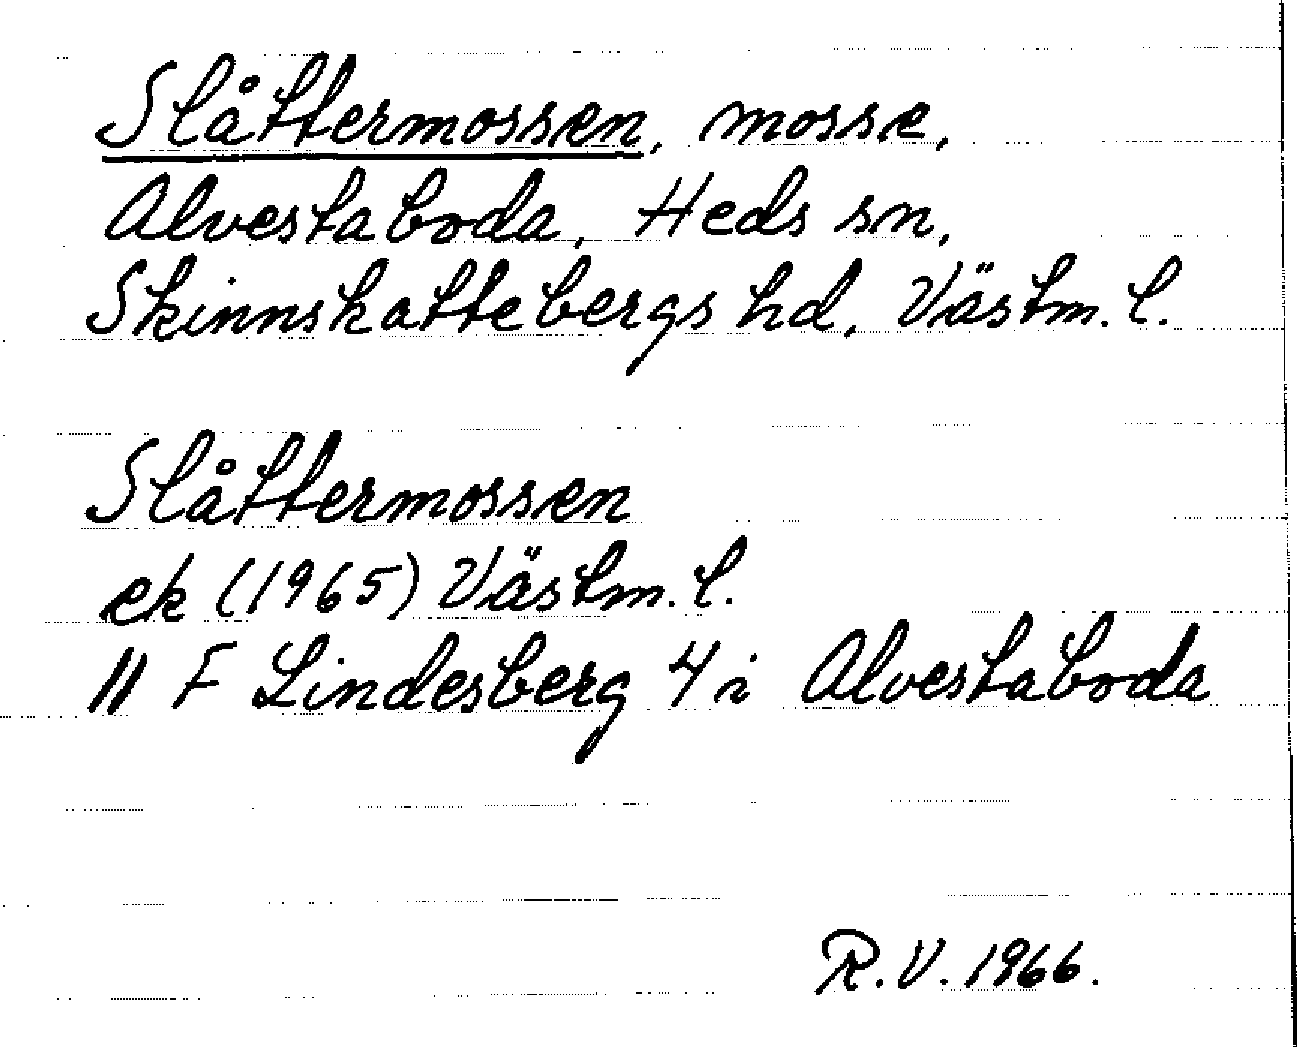 Slåttermossen, mosse,
Alvestaboda, Heds sn,
Skinnskattebergs hd, Västm. l.
Slåttermossen
ek (1965) Västm. l.
11 F Lindesberg 4 i Alvestaboda
R. V. 1966.